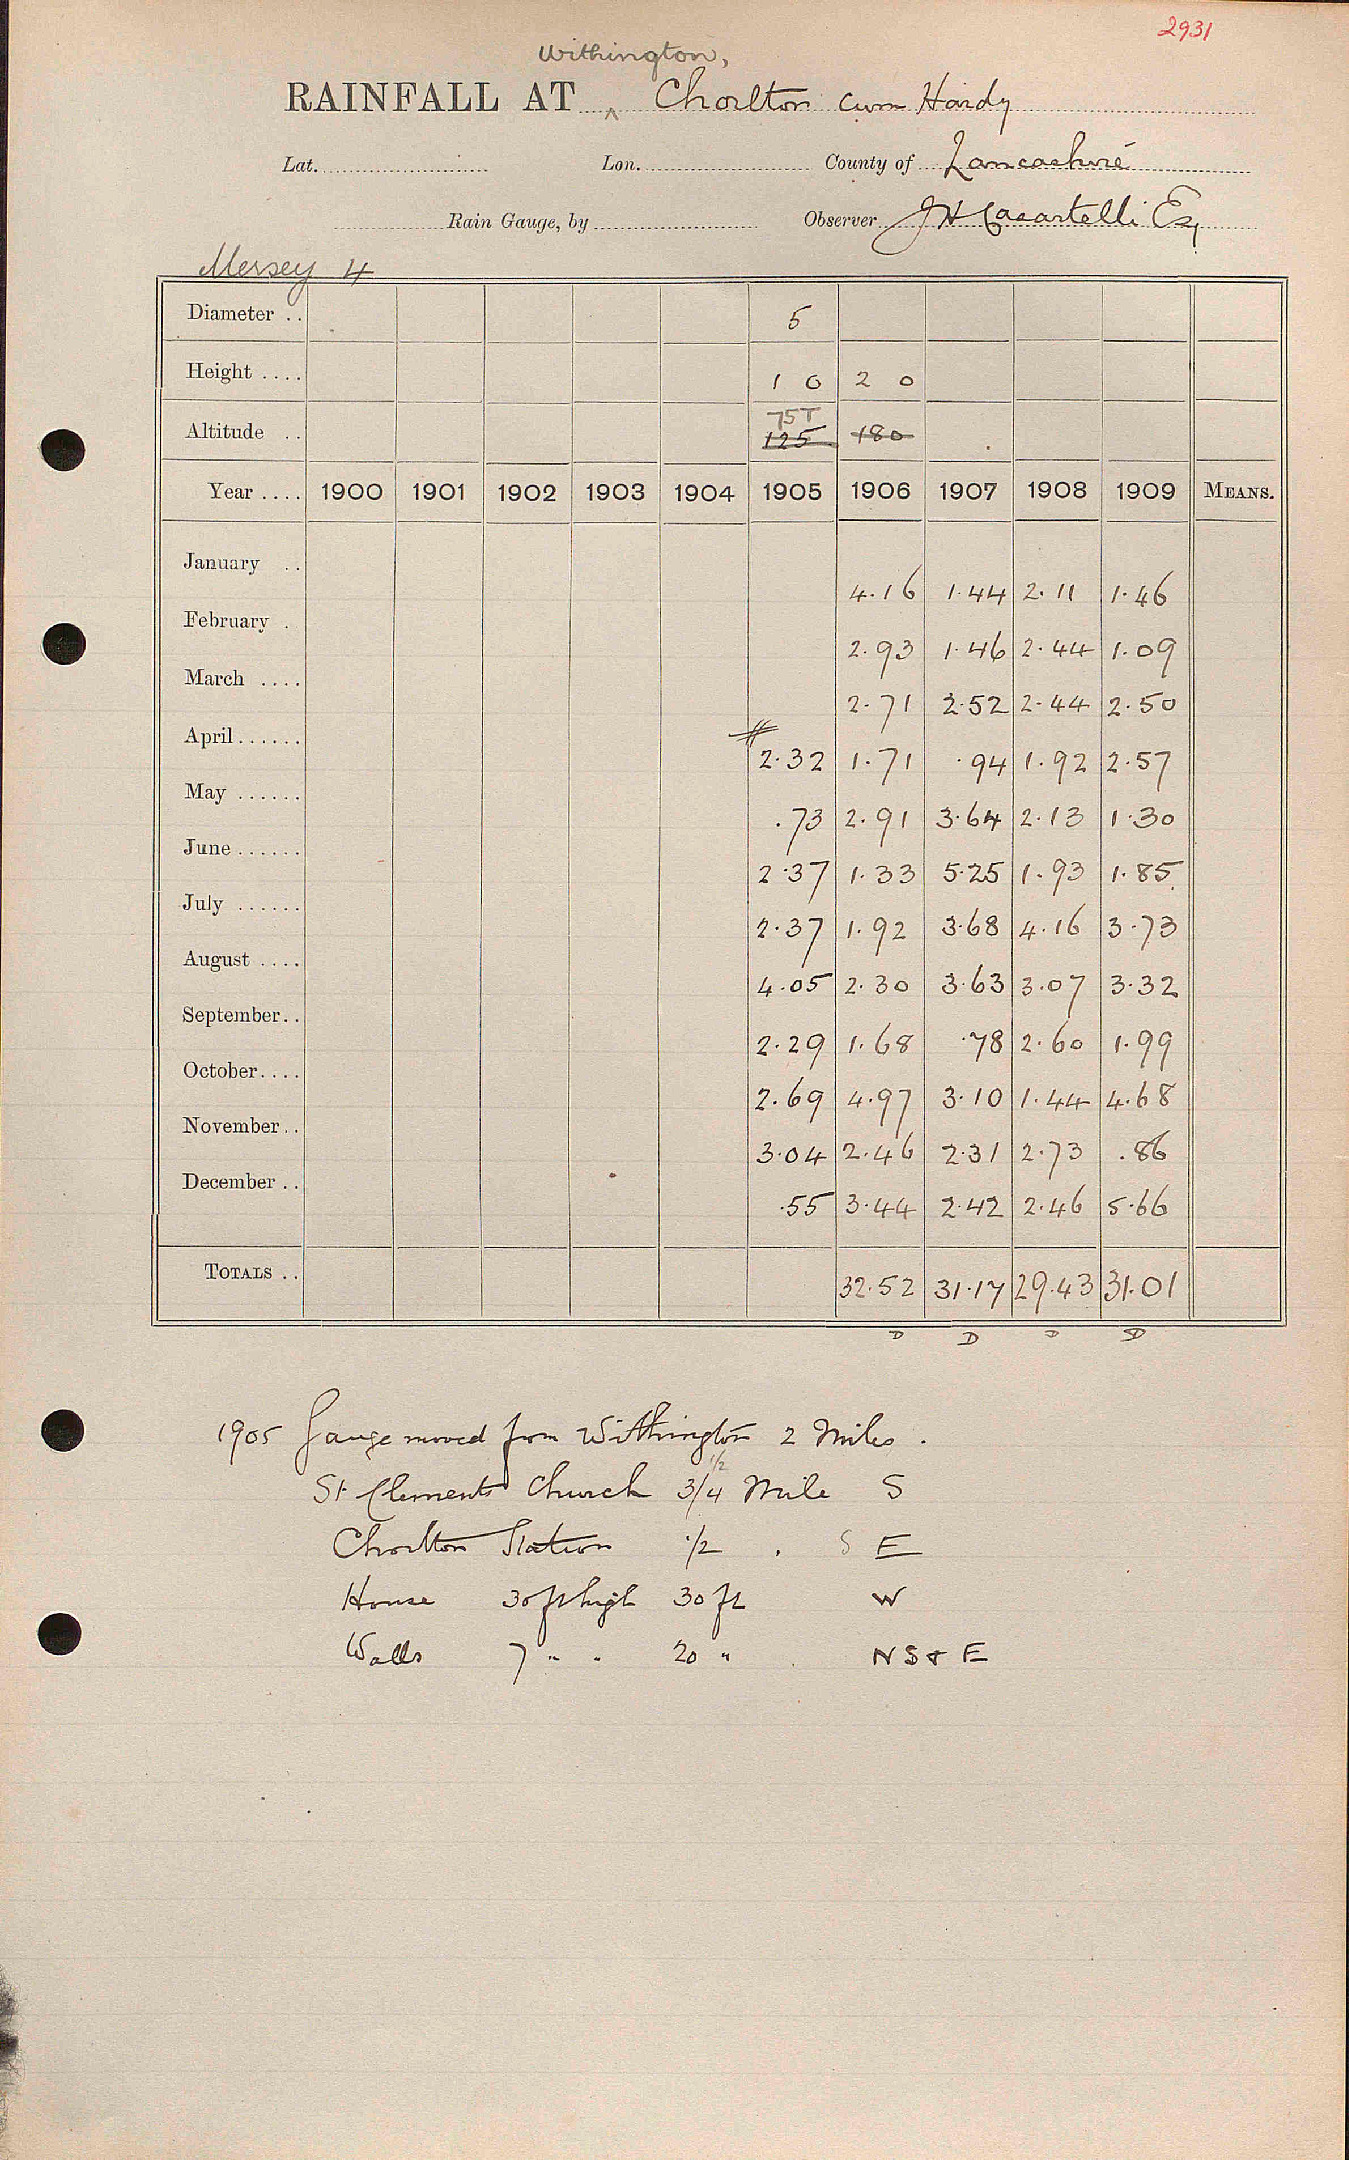 2931
Withington,
RAINFALL AT ^ Chorlton cum Hardy
Lat. Lon. County of Lancashire
Rain Gauge, by Observer J H Casartelli Esq
Mersey 4
Diameter .. 5
Height .... 1 0 2 0
75T
Altitude .. 125 180
Year .... 1900 1901 1902 1903 1904 1905 1906 1907 1908 1909 MEANS.
January .. 4.16 1.44 2.11 1.46
February . 2.93 1.46 2.44 1.09
March .... 2.71 2.52 2.44 2.50
April...... 2.32 1.71 .94 1.92 2.57
May ...... .73 2.91 3.64 2.13 1.30
June ...... 2.37 1.33 5.25 1.93 1.85
July ...... 2.37 1.92 3.68 4.16 3.73
August .... 4.05 2.30 3.63 3.07 3.32
September.. 2.29 1.68 .78 2.60 1.99
October.... 2.69 4.97 3.10 1.44 4.68
November.. 3.04 2.46 2.31 2.73 .86
December .. .55 3.44 2.42 2.46 5.66
TOTALS .. 32.52 31.17 29.43 31.01
D D D D
1905 Gauge moved from Withington 2 Miles.
1/2
St Clements Church 3/4 Mile S
Chorlton Station 1/2 . S E
House 30 ft high 30 ft W
Walls 7 " " 20 " N S & E